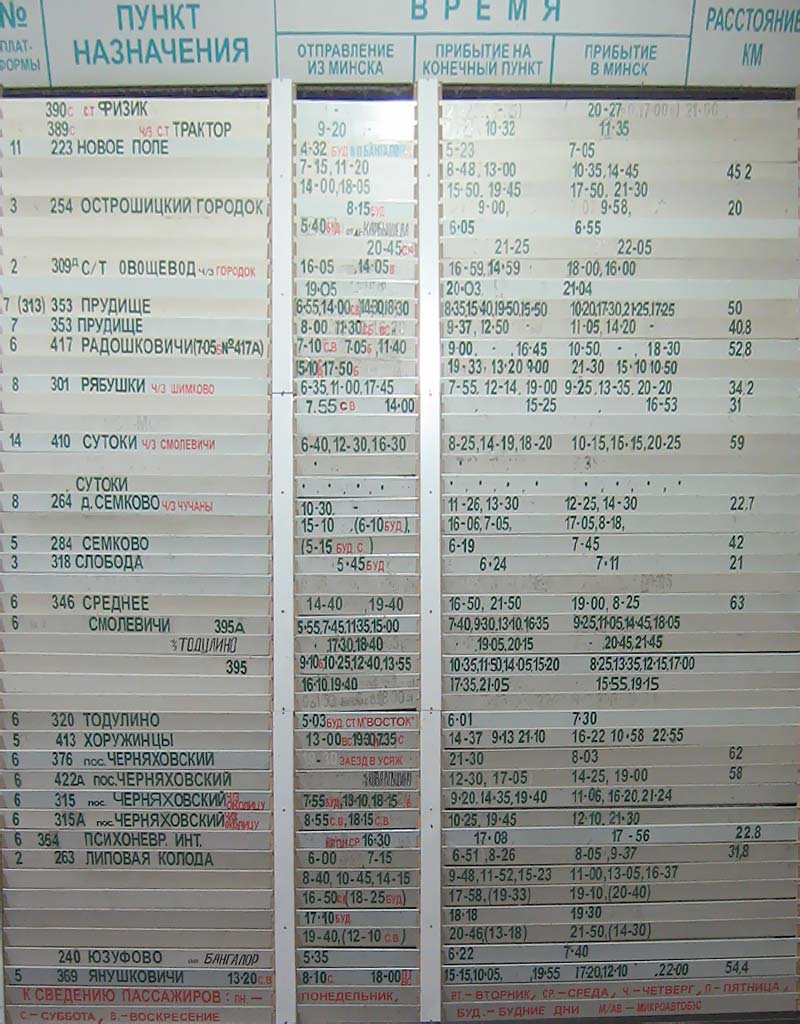 № ПЛАТ-ФОРМЫ ПУНКТ НАЗНАЧЕНИЯ ВРЕМЯ РАССТОЯНИЕ КМ
ОТПРАВЛЕНИЕ ИЗ МИНСКА ПРИБЫТИЕ НА КОНЕЧНЫЙ ПУНКТ ПРИБЫТИЕ В МИНСК
390с ст ФИЗИК 20-27
389с ч/з с.т ТРАКТОР 9-20 10-32 11-35
11 223 НОВОЕ ПОЛЕ 4-32 БУД 5-23 7-05
7-15, 11-20 8-48, 13-00 10-35, 14-45 45,2
14-00, 18-05 15-50, 19-45 17-50, 21-30
3 254 ОСТРОШИЦКИЙ ГОРОДОК 8·15 БУД 9-00, 9-58, 20
5·40 БУД от д. КАРБЫШЕВА 6-05 6-55
20-45 21-25 22-05
2 309д С/Т ОВОЩЕВОД ч/з ГОРОДОК 16-05 ,14-05в 16-59,14-59 18-00,16-00
19·05 20·03 21·04
7 (313) 353 ПРУДИЩЕ 6-55,14-00 С.В 8-35,15-40,19-50,15-50 10-20,17-30,21-25,17-25 50
7 353 ПРУДИЩЕ 8-00 11-30 9-37, 12-50 11-05, 14-20 40,8
6 417 РАДОШКОВИЧИ(7-05Б№417А) 7-10 С.В 7-05Б ,11-40 9-00, 16-45 10-50, 18-30 52,8
17-50Б 19-33, 13-20 9-00 21-30 15-10 10-50
8 301 РЯБУШКИ ч/з ШИМКОВО 6-35,11-00,17-45 7-55, 12-14, 19-00 9-25,13-35, 20-20 34,2
7.55 С В 14-00 15-25 16-53 31
14 410 СУТОКИ ч/з СМОЛЕВИЧИ 6-40,12-30,16-30 8-25,14-19,18-20 10-15,16-15,20-25 59
СУТОКИ
8 264 Д.СЕМКОВО ч/з ЧУЧАНЫ 10-30 11-26, 13-30 12-25, 14-30 22,7
15-10 ,(6-10БУД.), 16-06, 7-05, 17-05,8-18,
5 284 СЕМКОВО (5-15 БУД. С.) 6-19 7-45 42
3 318 СЛОБОДА 5·45БУД 6·24 7·11 21
6 346 СРЕДНЕЕ 14-40 ,19-40 16-50, 21-50 19-00, 8-25 63
6 СМОЛЕВИЧИ 395А 5-55,7-45,11-35,15-00 7-40,9-30,13-10,16-35 9-25,11-05,14-45,18-05
ч/з ТОДУЛИНО 17-30,18-40 ,19-05,20-15 20-45,21-45
395 9-10 10-25,12-40,13-55 10-35,11-50,14-05,15-20 8-25,13-35,12-15,17-00
16-10,19-40 17-35,21-05 15-55,19-15
6 320 ТОДУЛИНО 5-03 БУД. СТ М"ВОСТОК" 6-01 7-30
5 413 ХОРУЖИНЦЫ 13-00 14-37 9·13 21·10 16-22 10·58 22·55
6 376 пос. ЧЕРНЯХОВСКИЙ ЗАЕЗД В УСЯЖ 21-30 8-03 62
6 422А пос. ЧЕРНЯХОВСКИЙ 12-30, 17-05 14-25, 19-00 58
6 315 пос. ЧЕРНЯХОВСКИЙ ч/з ОКОЛИЦУ 7-55 БУД 13-10,18-15 9-20,14-35,19-40 11-06, 16-20,21-24
6 315А пос. ЧЕРНЯХОВСКИЙ ч/з ОКОЛИЦУ 8-55С.В,18-15С.В. 10-25, 19-45 12-10, 21-30
6 364 ПСИХОНЕВР. ИНТ. 16-30 17·08 17-56 22.8
2 263 ЛИПОВАЯ КОЛОДА 6-00 7-15 6-51 ,8-26 8-05 ,9-37 31,8
8-40, 10-45, 14-15 9-48, 11-52, 15-23 11-00,13-05,16-37
16-50 (18-25БУД) 17-58, (19-33) 19-10,(20-40)
17·10БУД. 18·18 19·30
19-40,(12-10 С.В) 20-46(13-18) 21-50,(14-30)
240 ЮЗУФОВО БАНГАЛОР 5-35 6-22 7-40
5 369 ЯНУШКОВИЧИ 13·20 С.В 8-10 С. 18-00 15-15,10-05, ,19-55 17-20,12-10 ,22-00 54,4
К СВЕДЕНИЮ ПАССАЖИРОВ : ПН.— ПОНЕДЕЛЬНИК, ВТ.- ВТОРНИК, СР.-СРЕДА, Ч.-ЧЕТВЕРГ, П-ПЯТНИЦА,
С.-СУББОТА, В.-ВОСКРЕСЕНИЕ БУД.-БУДНИЕ ДНИ М/АВ-МИКРОАВТОБУС